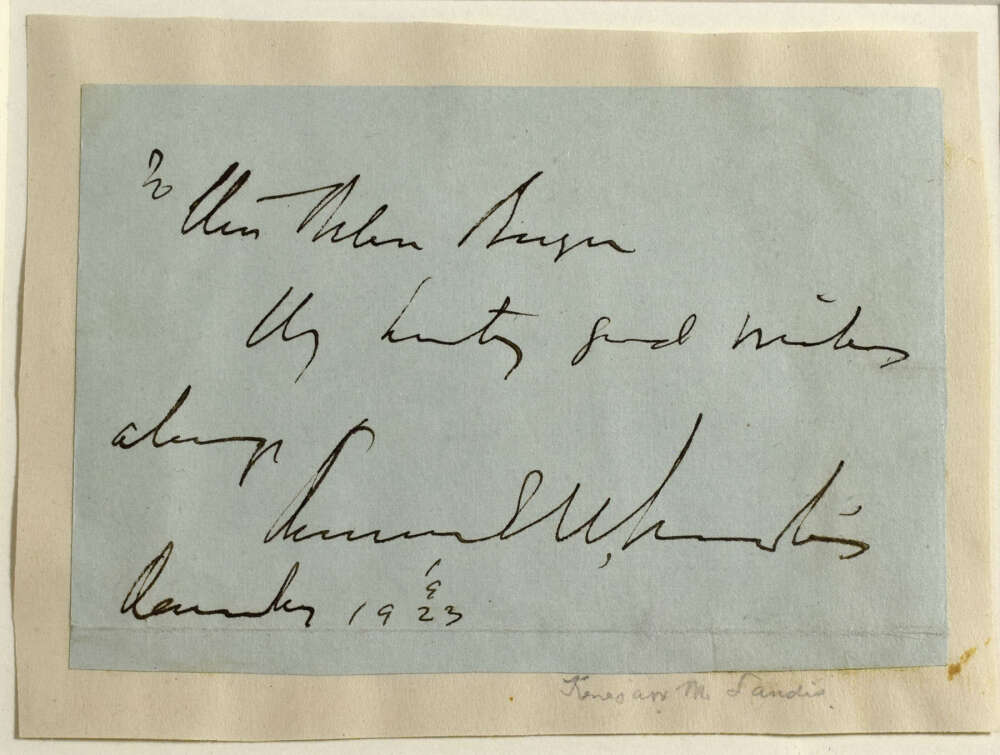 To Miss Helen Burger
My hearty good wishes
always
Kenesaw M. Landis
December 19 1923
Kenesaw M. Landis